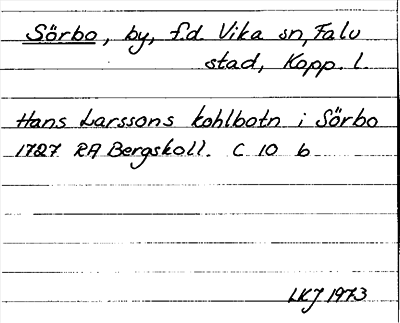 Sörbo, by, f.d. Vika sn, Falu
stad, Kopp. l.
Hans Larssons kohlbotn i Sörbo
1727 RA Bergskoll. C 10 b
LKJ 1973